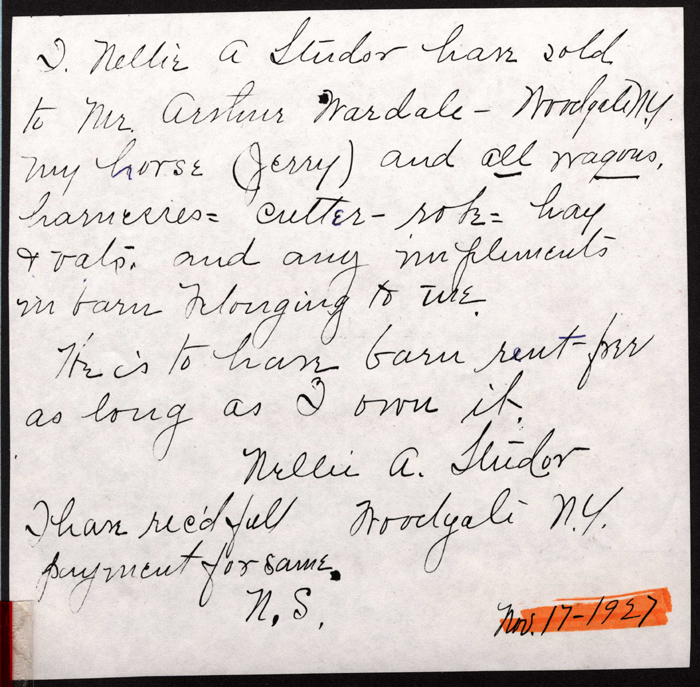 I. Nellie A Studor have sold
to Mr. Arthur Wardale - Woodgate N.Y.
my horse (Jerry) and all wagons,
harnesses = cutter - robe = hay
& oats. and any implements
in barn belonging to me.
He is to have barn rent-free
as long as I own it.
Nellie A. Studor
I have rec'd full Woodgate N.Y.
payment for same.
N.S.
Nov. 17-1927